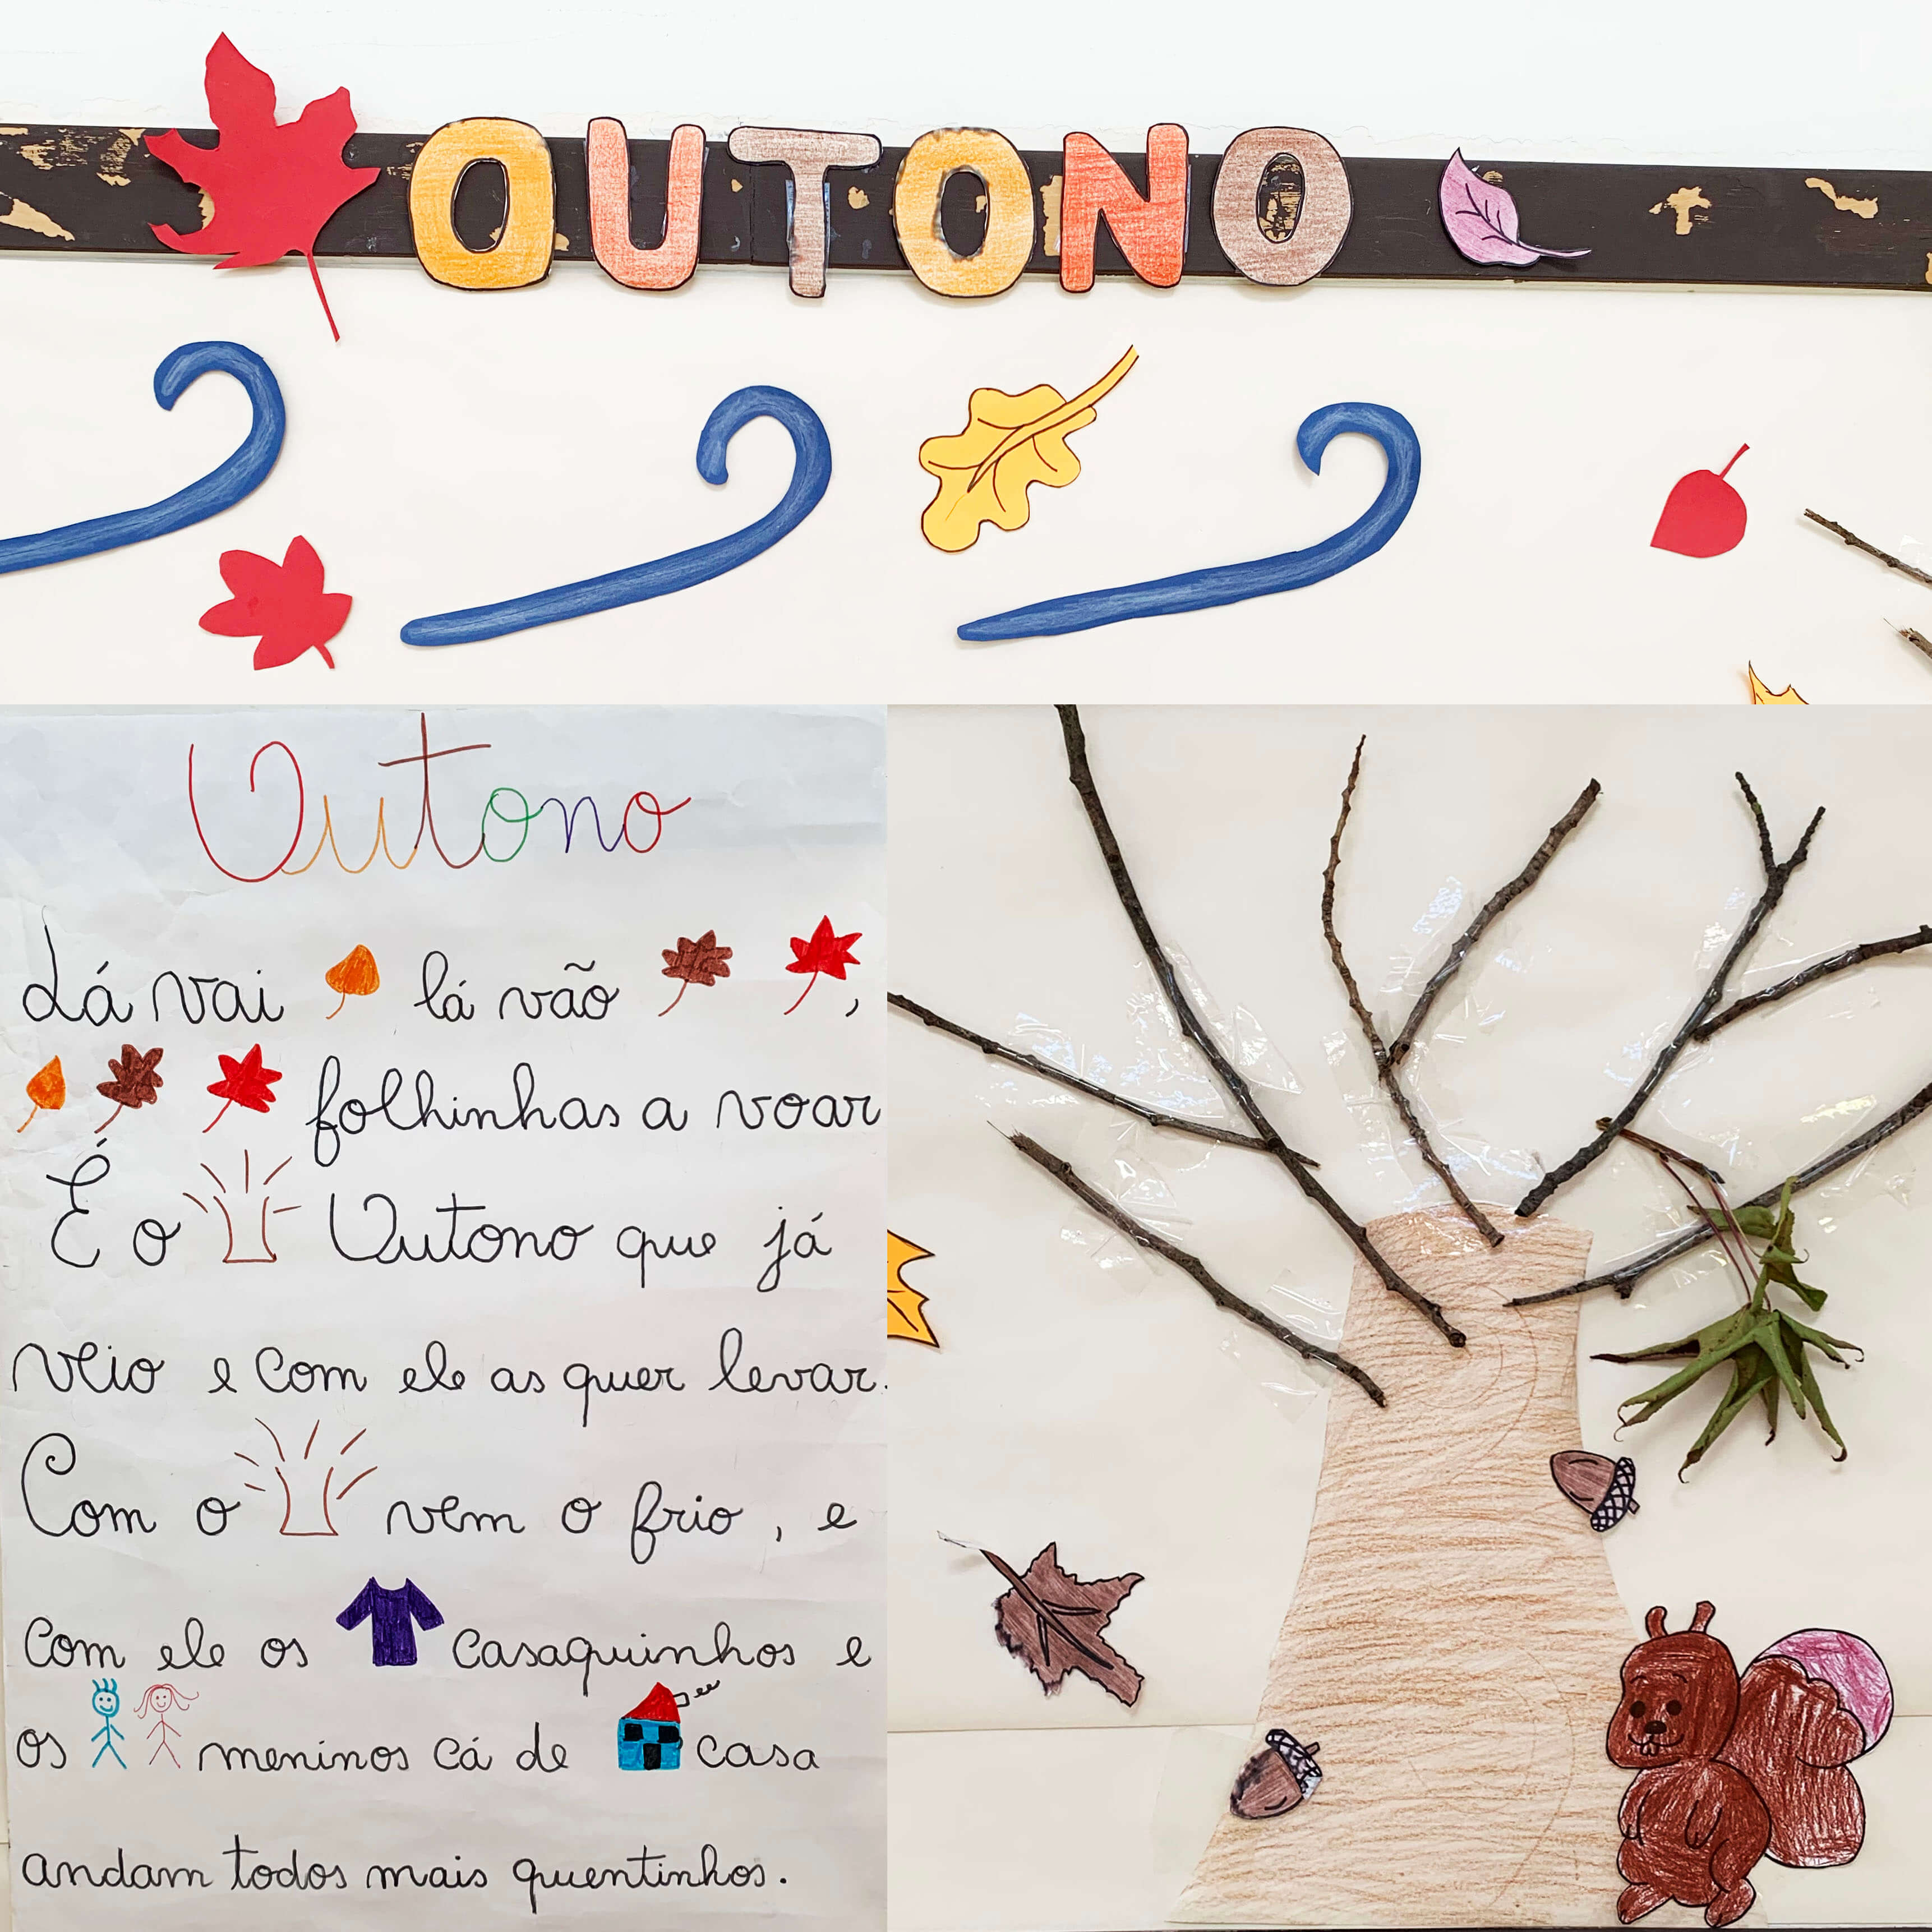 OUTONO
Outono
Lá vai lá vão ,
folhinhas a voar
É o Outono que já
veio e com ele as quer levar.
Com o vem o frio, e
com ele os casaquinhos e
os meninos cá de casa
andam todos mais quentinhos.